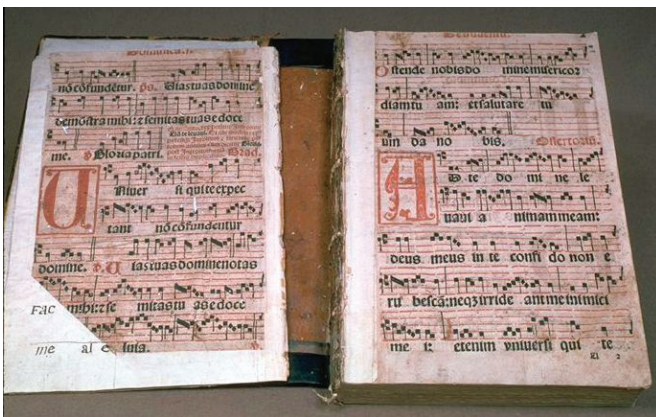 Dominica.i.
nōcōfundētur. ps. Uias tuas domine
demōstra mihi: ⁊ semitas tuas edoce
me. Gloria patri. Grad.
Uniuer si qui te expec
tant nō cōfundentur
domine. v. U ias tuas domine notas
FAC mihi: ⁊ se mitas tu as edoce
me al e luia.
Ostende nobis do mine misericor
diam tu am: et salutare tu
um da no bis. Offertoriū.
AD te do mi ne le
uaui a nimam meam:
deus meus in te confi do non e
ru bescā: neqz irride ant me inimici
me i: etenim vniuersi qui te